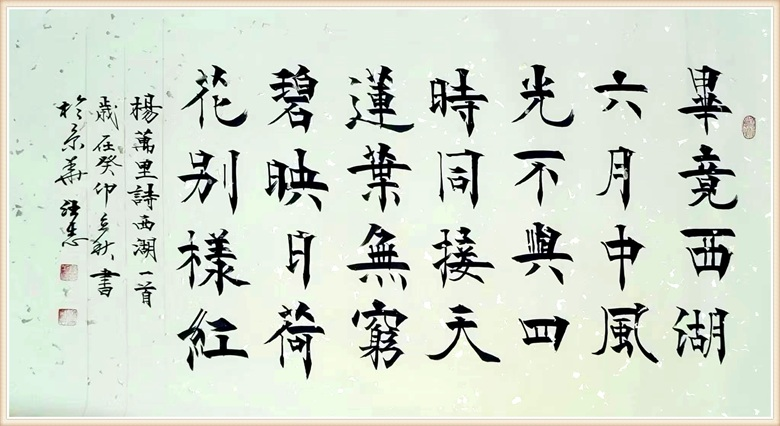 畢竟西湖
六月中風
光不與四
時同接天
蓮葉無窮
碧映日荷
花别樣紅
楊萬里詩西湖一首
歲在癸卯立秋書
於京華